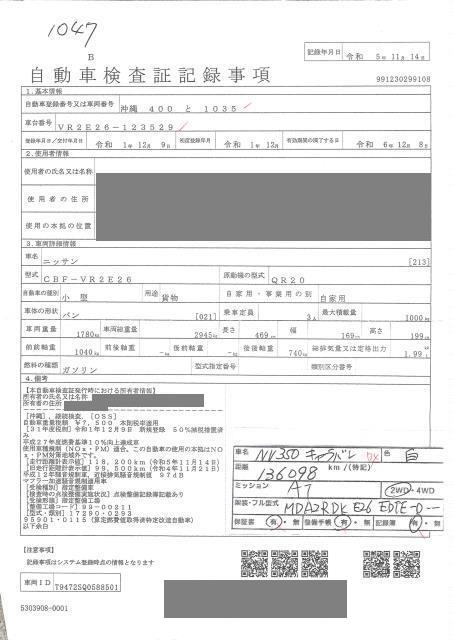 1047
B
記録年月日 令和 5年11月14日
自動車検査証記録事項
991230299108
1.基本情報
自動車登録番号又は車両番号 沖縄 400 と 1035
車台番号 VR2E26-123529
登録年月日/交付年月日 令和 1年12月 9日 初度登録年月 令和 1年12月 有効期間の満了する日 令和 6年12月 8日
2.使用者情報
使用者の氏名又は名称
使用者の住所
使用の本拠の位置
3.車両詳細情報
車名 ニッサン [213]
型式 CBF-VR2E26 原動機の型式 QR20
自動車の種別 小型 用途 貨物 自家用・事業用の別 自家用
車体の形状 バン [021] 乗車定員 3人 最大積載量 1000kg
車両重量 1780kg 車両総重量 2945kg 長さ 469cm 幅 169cm 高さ 199cm
前前軸重 1040kg 前後軸重 -kg 後前軸重 -kg 後後軸重 740kg 総排気量又は定格出力 1.99L
燃料の種類 ガソリン 型式指定番号 類別区分番号
4.備考
【本自動車検査証発行時における所有者情報】
所有者の氏名又は名称
所有者の住所
[沖縄],継続検査,[OSS]
自動車重量税額 ¥7,500 本則税率適用
[31年度税制]令和1年12月9日 新規登録 50%減税措置済み
平成27年度燃費基準10%向上達成車
使用車種規制(NOx・PM)適合,この自動車の使用の本拠はNOx・PM対策地域外です。
[走行距離計表示値]118,200km(令和5年11月14日)
[旧走行距離計表示値]99,500km(令和4年11月21日)
平成12年騒音規制車,近接排気騒音規制値 97dB
マフラー加速騒音規制適用車
[受検種別]指定整備車
[検査時の点検整備実施状況]点検整備記録簿記載あり
[受検形態]指定整備工場
[整備工場コード]99-00211
[型式・類別]17290-0293
95901-0115(算定燃費値取得済特定改造自動車)
以下余白
車名 NV350 キャラバン DX 色 白
距離 136098 km/(特記)
ミッション AT 2WD・4WD
架装・フル型式 MDA2RDK E26 EDTE-0--
保証書 有・無 整備手帳 有・無 記録簿 有・無
【注意事項】
記録事項はシステム登録時点の情報となります
車両ID T9472SQ0588501
5303908-0001